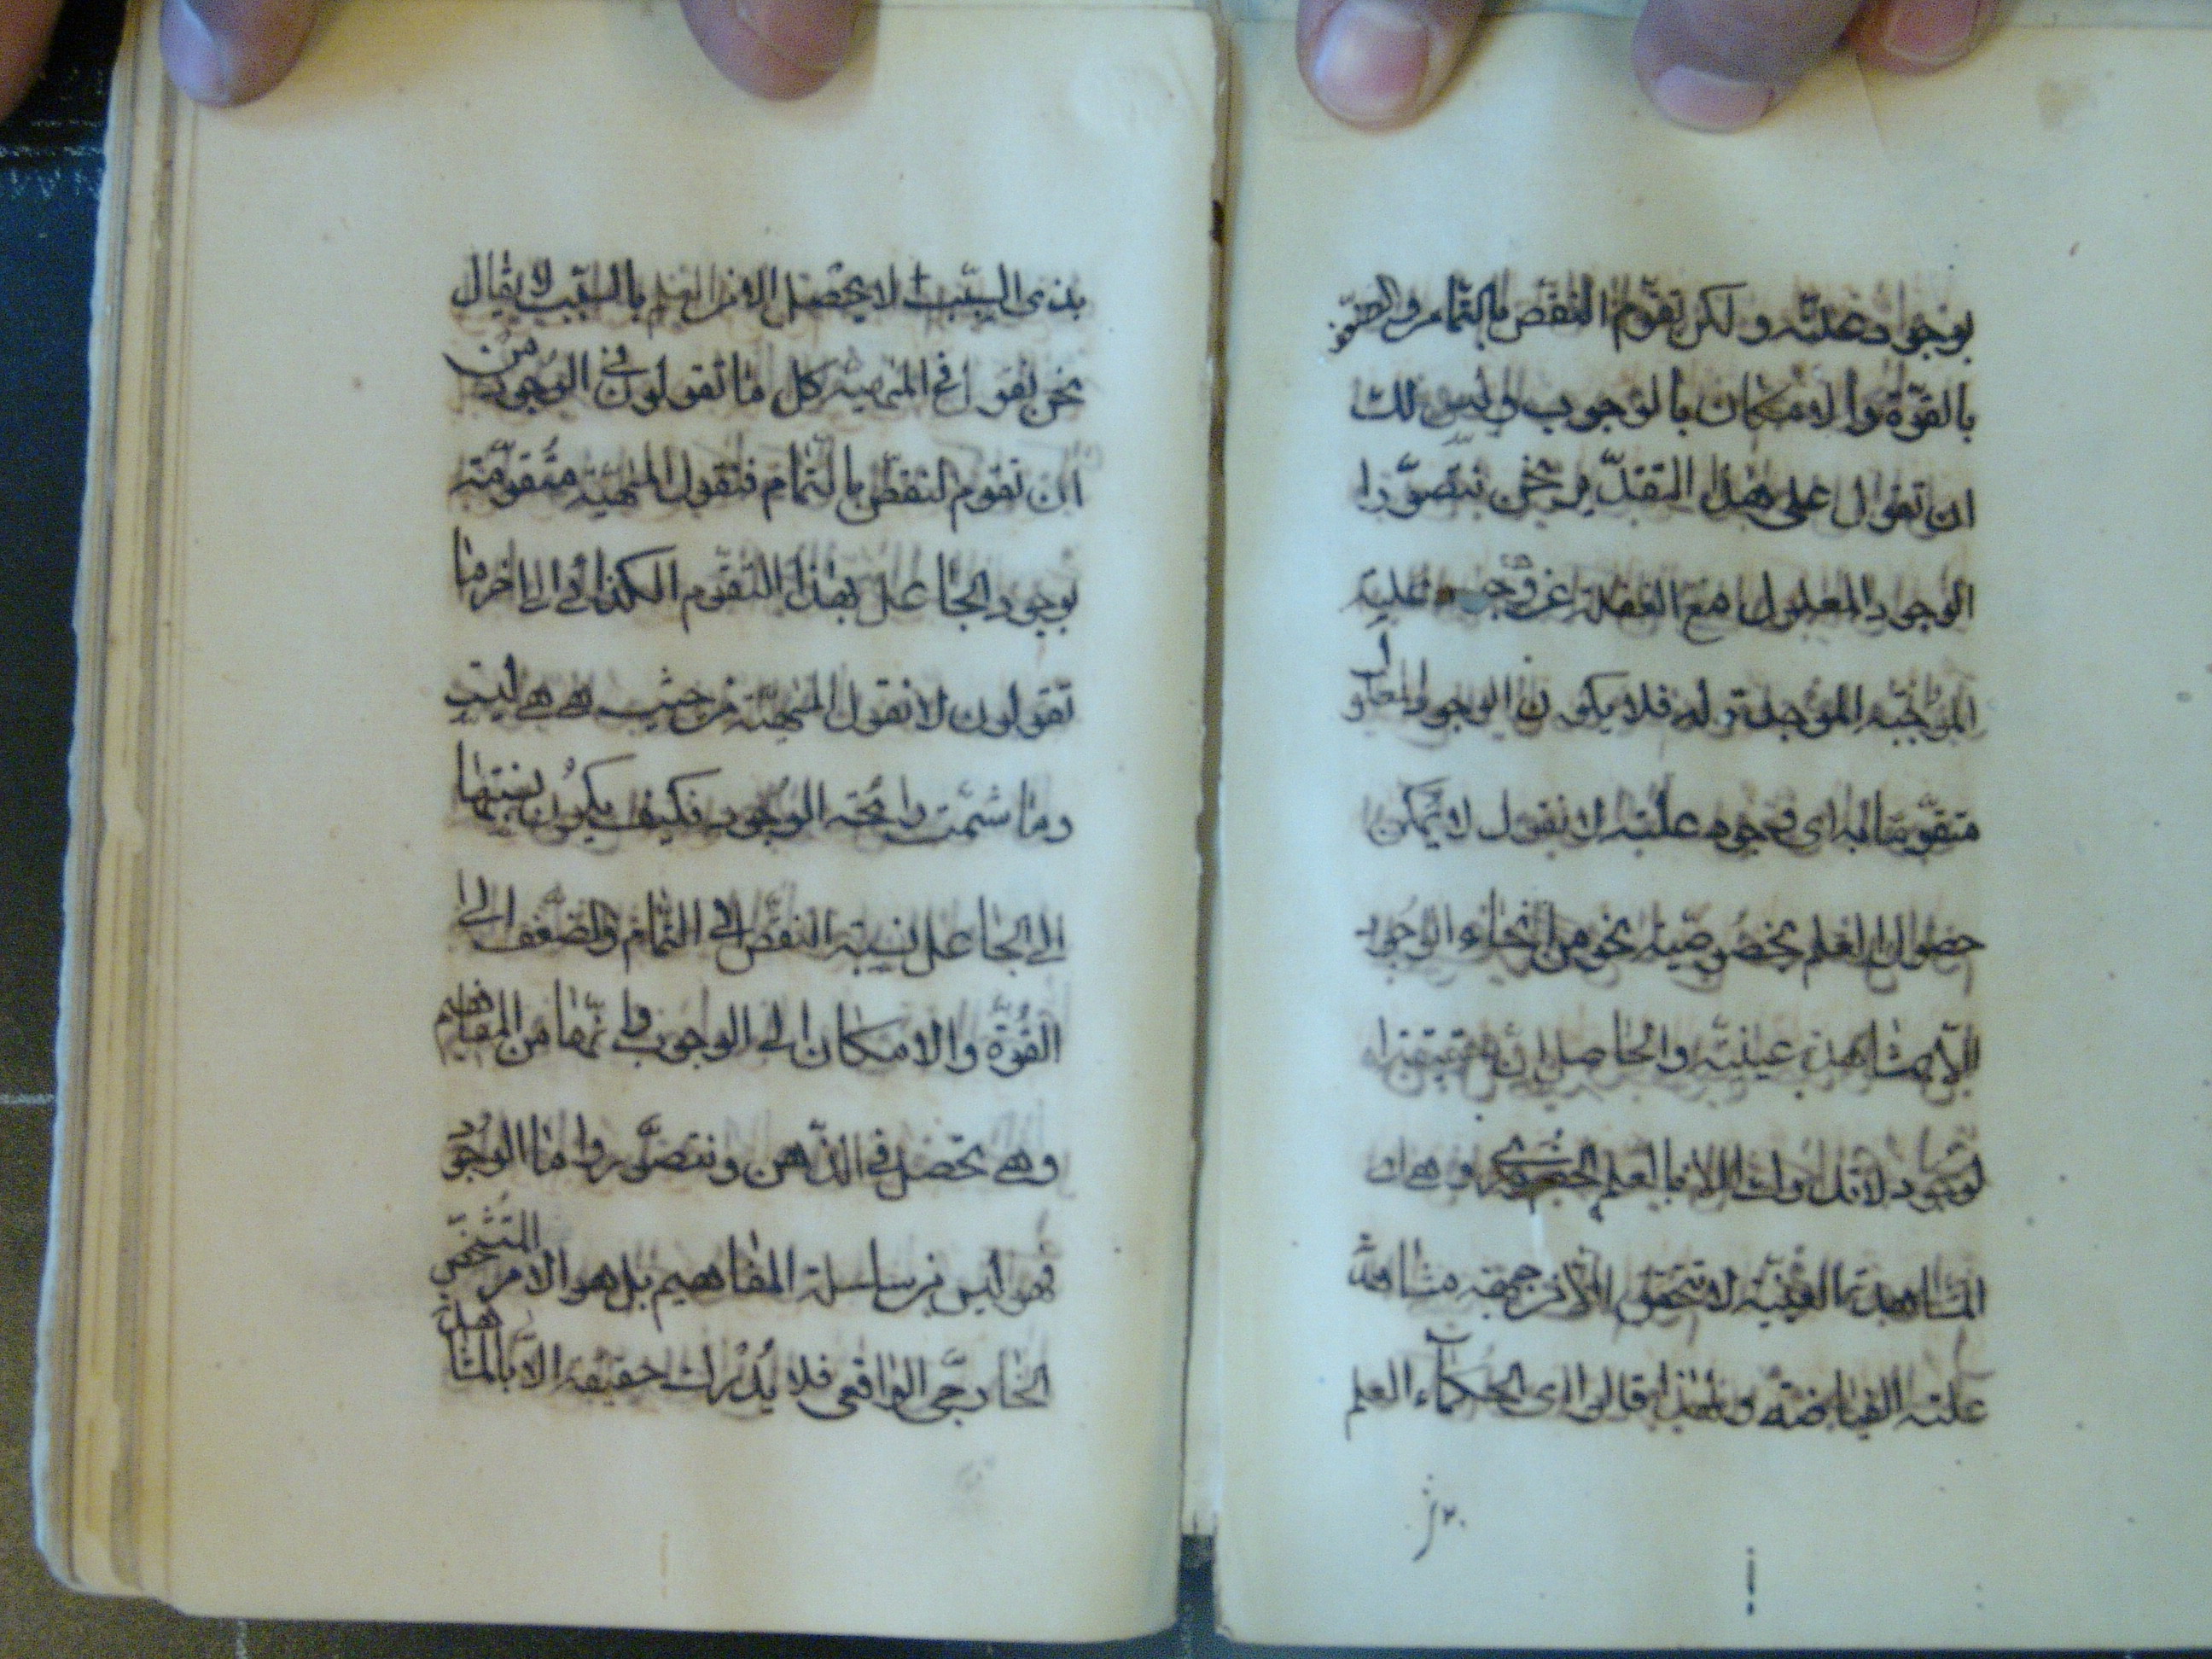 بوجود علته ولكن تقوم النقص بالتمام والضعف
بالقوة والامكان بالوجوب وليس لك
ان تقول على هذا التقدير نحن نتصور
الوجود المعلول مع الغفلة عن علته
الموجبة الموجدة له فلا يكون الوجود المعلول
متقوما به اى علته لا نقول لا يمكن
حصول العلم بخصوصية نحو من انحاء الوجود
الا بمشاهدة عينية والحاصل ان حقيقة
لوجود لا تدرك الا بالعلم الحضورى وهى
المشاهدة العينية لا تتحقق الا من جهة مشاهدة
علته الفياضة ولهذا قالوا اى الحكماء العلم
بذى السبب لا يحصل الا من العلم بالسبب لا يقال
نحن نقول فى المهية كل ما تقولون فى الوجود من
ان تقوم النقص بالتمام فنقول المهية متقومة
بوجود الجاعل بهذا التقوم الكذائى الى اخر ما
تقولون لا نقول المهية من حيث هى هى ليست
وما شمت رايحة الوجود فكيف يكون نسبتها
الى الجاعل نسبة النقص الى التمام والضعف الى
القوة والامكان الى الوجوب وانها من المفاهيم
وهى تحصل فى الذهن ونتصور واما الوجود
فهو ليس من سلسلة المفاهيم بل هو الامر المتشخص
الخارجى الواقعى فلا يدرك حقيقة الا بالمشاهدة